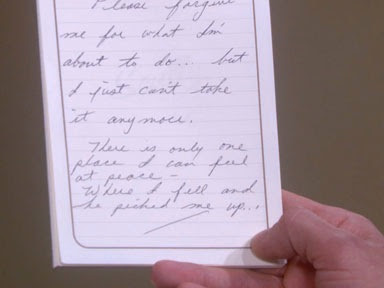 Please forgive
me for what I'm
about to do... but
I just can't take
it anymore.
There is only one
place I can feel
at peace -
Where I fell and
he picked me up...